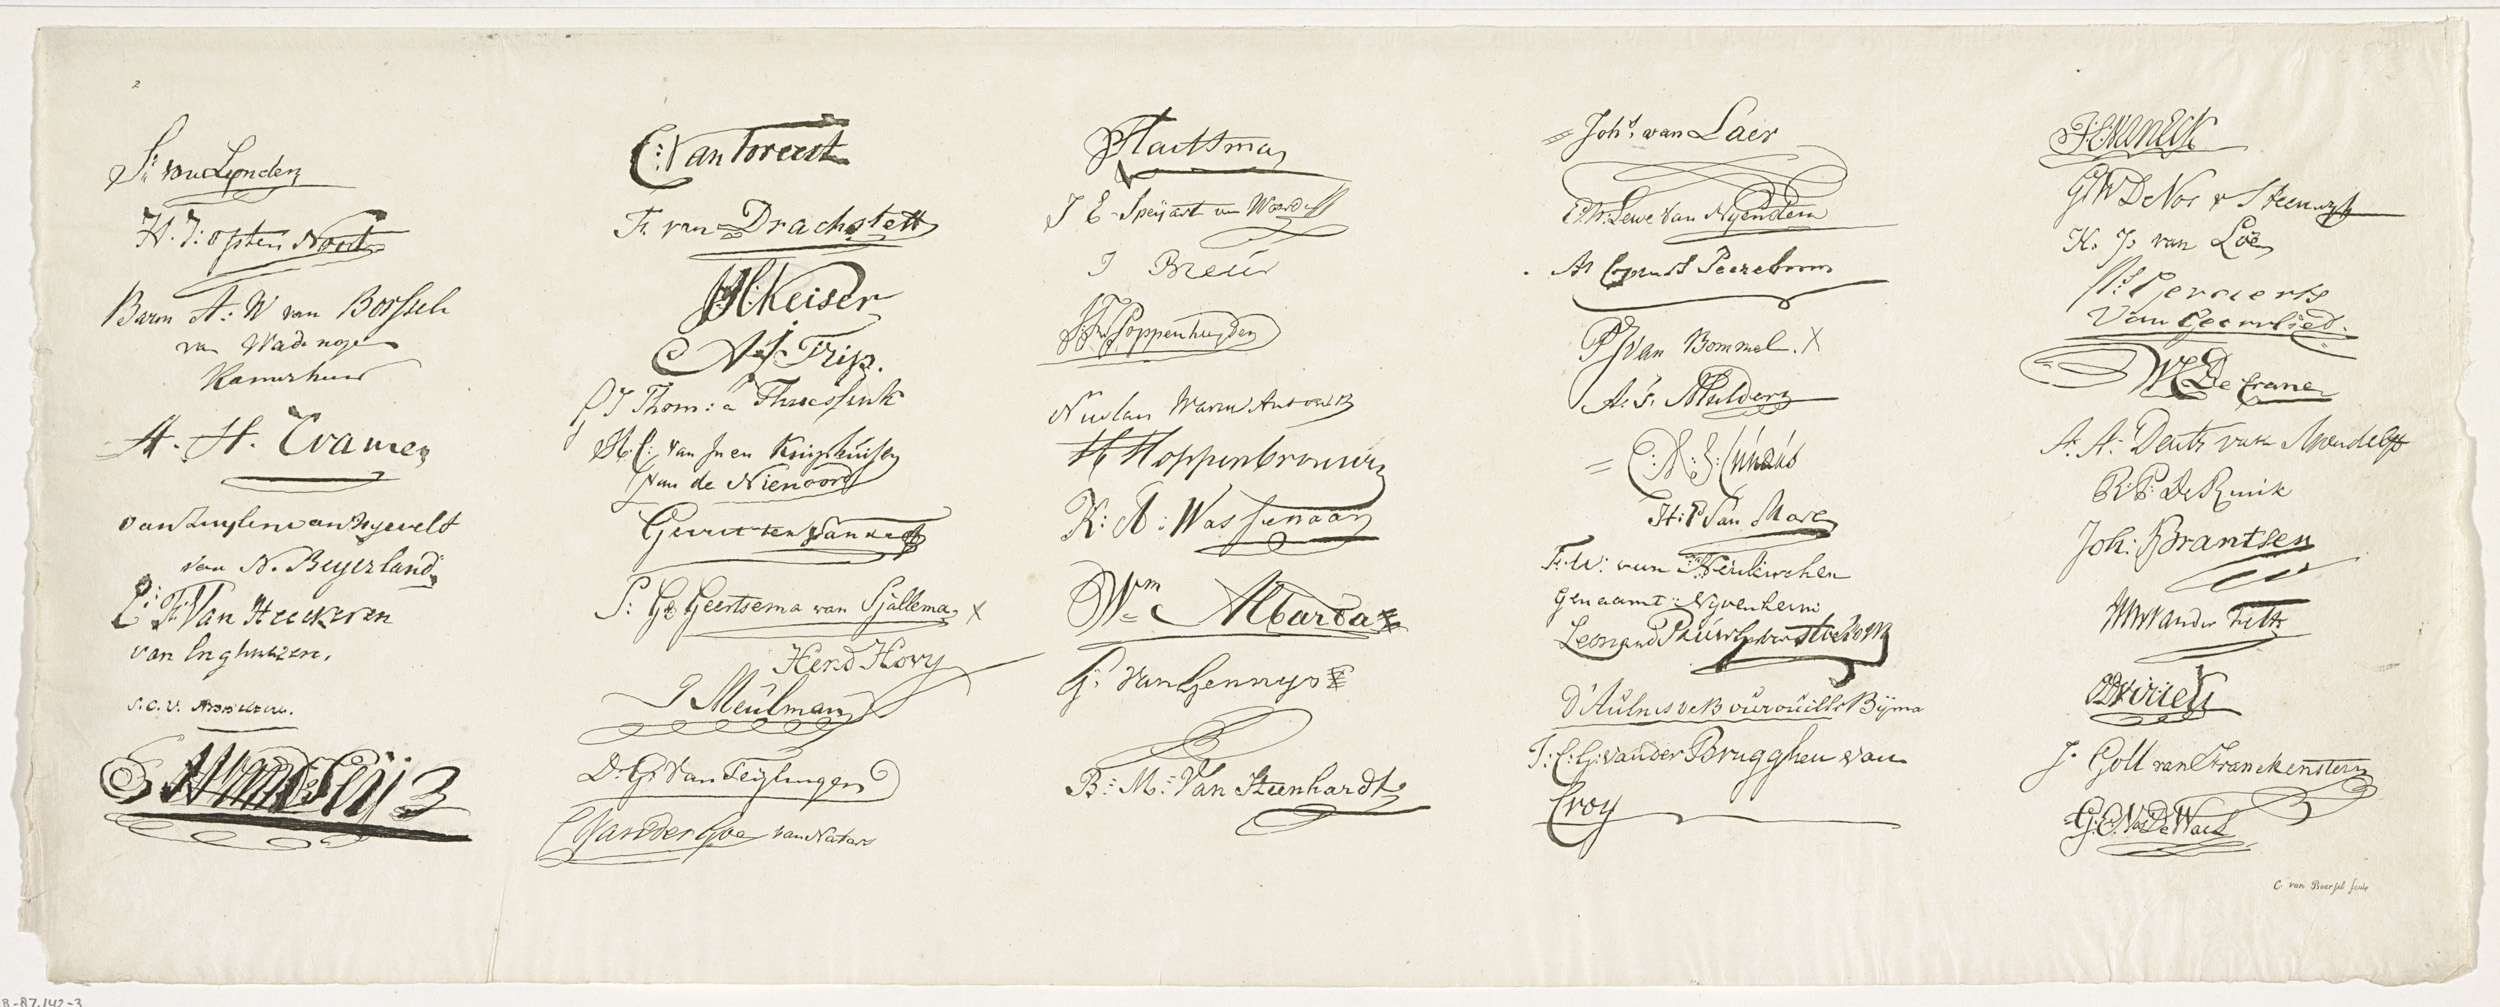 2
S: van Lynden
H. J: opten Noort
Baron A: W van Borssele
van Wadenoyen
Kamerheer
A. H. Cramer
van Zuylen van Nyevelt
van N. Beyerland
van Heeckeren
van Enghuizen.
S. C. V.
C: Van Foreest
F. van Drachstett
Keiser
Trip.
J Thom: a Thuessink
H. C: van In en Kniphuisen
van de Nienoord
Gerrit ten
S: G. Geertsema van Sjallema X
Hend Hovy
J Meulman
D: G: Van Teijlingen
Van der Goe van Naters
J E Speijart van Woerden
J Breur
Poppenhuyden
Nicolaas Warin Antonisz
H Hoppenbrouwer
K: A: Wassenaar
Wm Albarda
G: Van Gennip
B: M: Van Steenhardt
= Joh.s van Laer
Lewe Van Nyenstein
Peereboom
Van Bommel. X
A. F. Mulder
= C: R: S: Cunaus
H: P Van Mare
F: W: van Neukirchen
Genaamt: Nyvenheim
Leonard
D'Aulnis de Bourouill Bijma
J: C: G: van der Brugghen van
Croy
van Eck
G W De Vos v Steenwyk
K. J: van Loë
Gevaerts
Van Geervliet.
De Crane
A. A. Deutz van Assendelft
R: P: De Kuik
Joh: Brantsen
van der
J. Goll van Franckenstein
G: C: Vos De Wael
C. van Baersel sculp
B-87.142-3